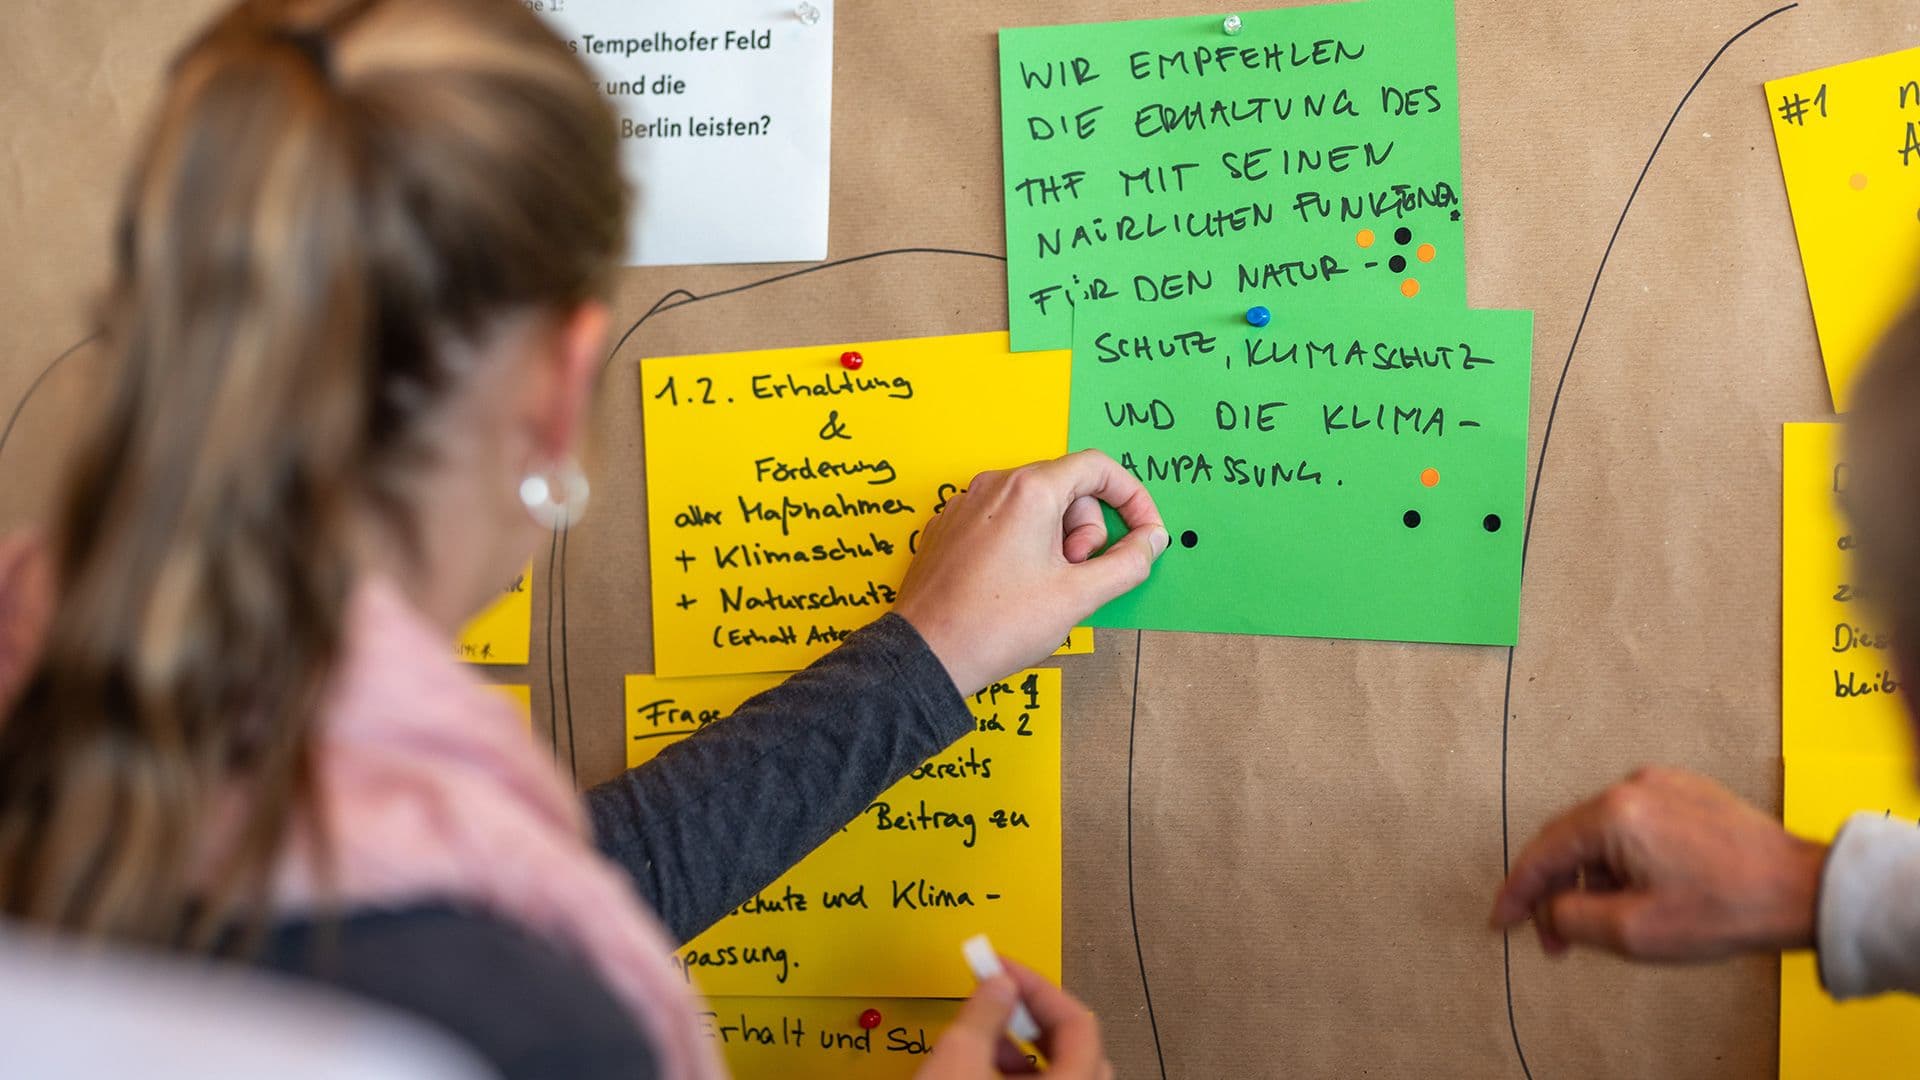 ge 1:
s Tempelhofer Feld
z und die
Berlin leisten?
WIR EMPFEHLEN
DIE ERHALTUNG DES
THF MIT SEINEN
NATÜRLICHEN FUNKTIONEN
FÜR DEN NATUR-
SCHUTZ, KLIMASCHUTZ
UND DIE KLIMA-
ANPASSUNG.
1.2. Erhaltung
&
Förderung
aller Maßnahmen
+ Klimaschutz (
+ Naturschutz
(Erhalt Arte
Frage
ppe 1
isch 2
bereits
Beitrag zu
chutz und Klima-
npassung.
Erhalt und Sch
#1
Dies
bleib